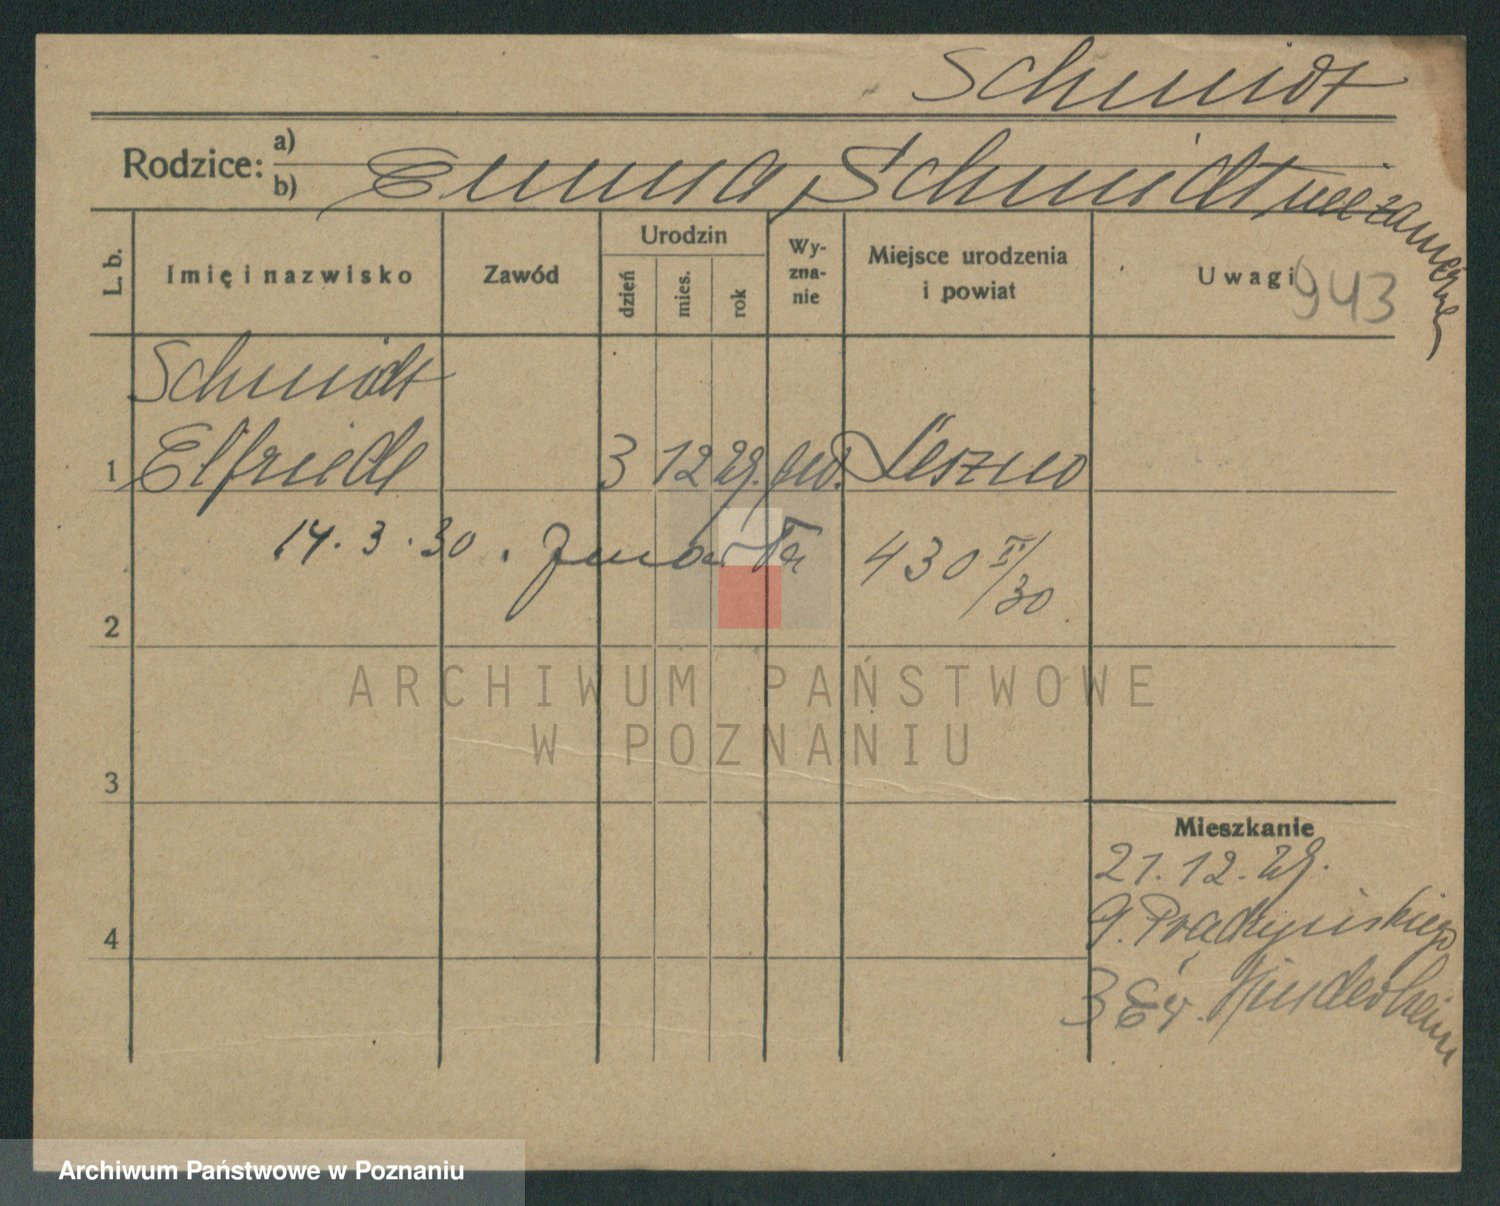 Schmidt
Rodzice:
a)
b) Emma Schmidt niezamężna
L. b.
Imię i nazwisko
Zawód
Urodzin
dzień
mies.
rok
Wy-
zna-
nie
Miejsce urodzenia
i powiat
Uwagi
943
Schmidt
1 Elfriede 3 12 29. ew. Leszno
14. 3. 30. zmarła 430 II/30
2
3
4
Mieszkanie
21. 12. 29.
Prądzyńskiego
3 Ev. Kinderheim
ARCHIWUM PAŃSTWOWE
W POZNANIU
Archiwum Państwowe w Poznaniu